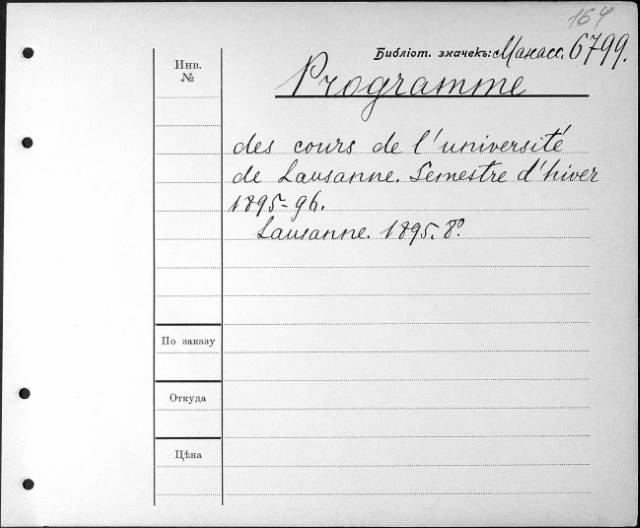 164
Библіот. значекъ: Макасс. 6799.
Инв.
№
Programme
des cours de l'université
de Lausanne. Semestre d'hiver
1895-96.
Lausanne. 1895. 8º.
По заказу
Откуда
Цѣна